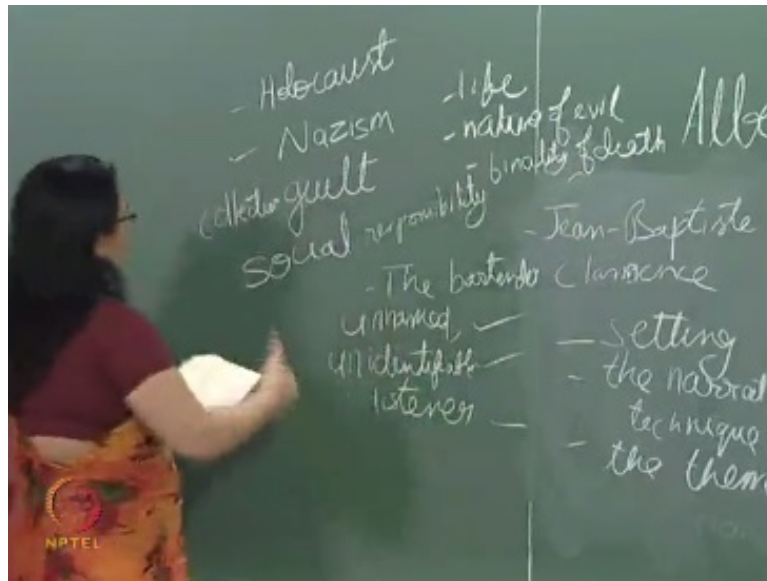 - Holocaust
- Nazism
guilt
social responsibility
- life
- nature of evil
- finality of death
Albe
- Jean-Baptiste
Clamence
- The bartender
unnamed,
unidentifiable
listener
- setting
- the narrat
technique
- the them
NPTEL